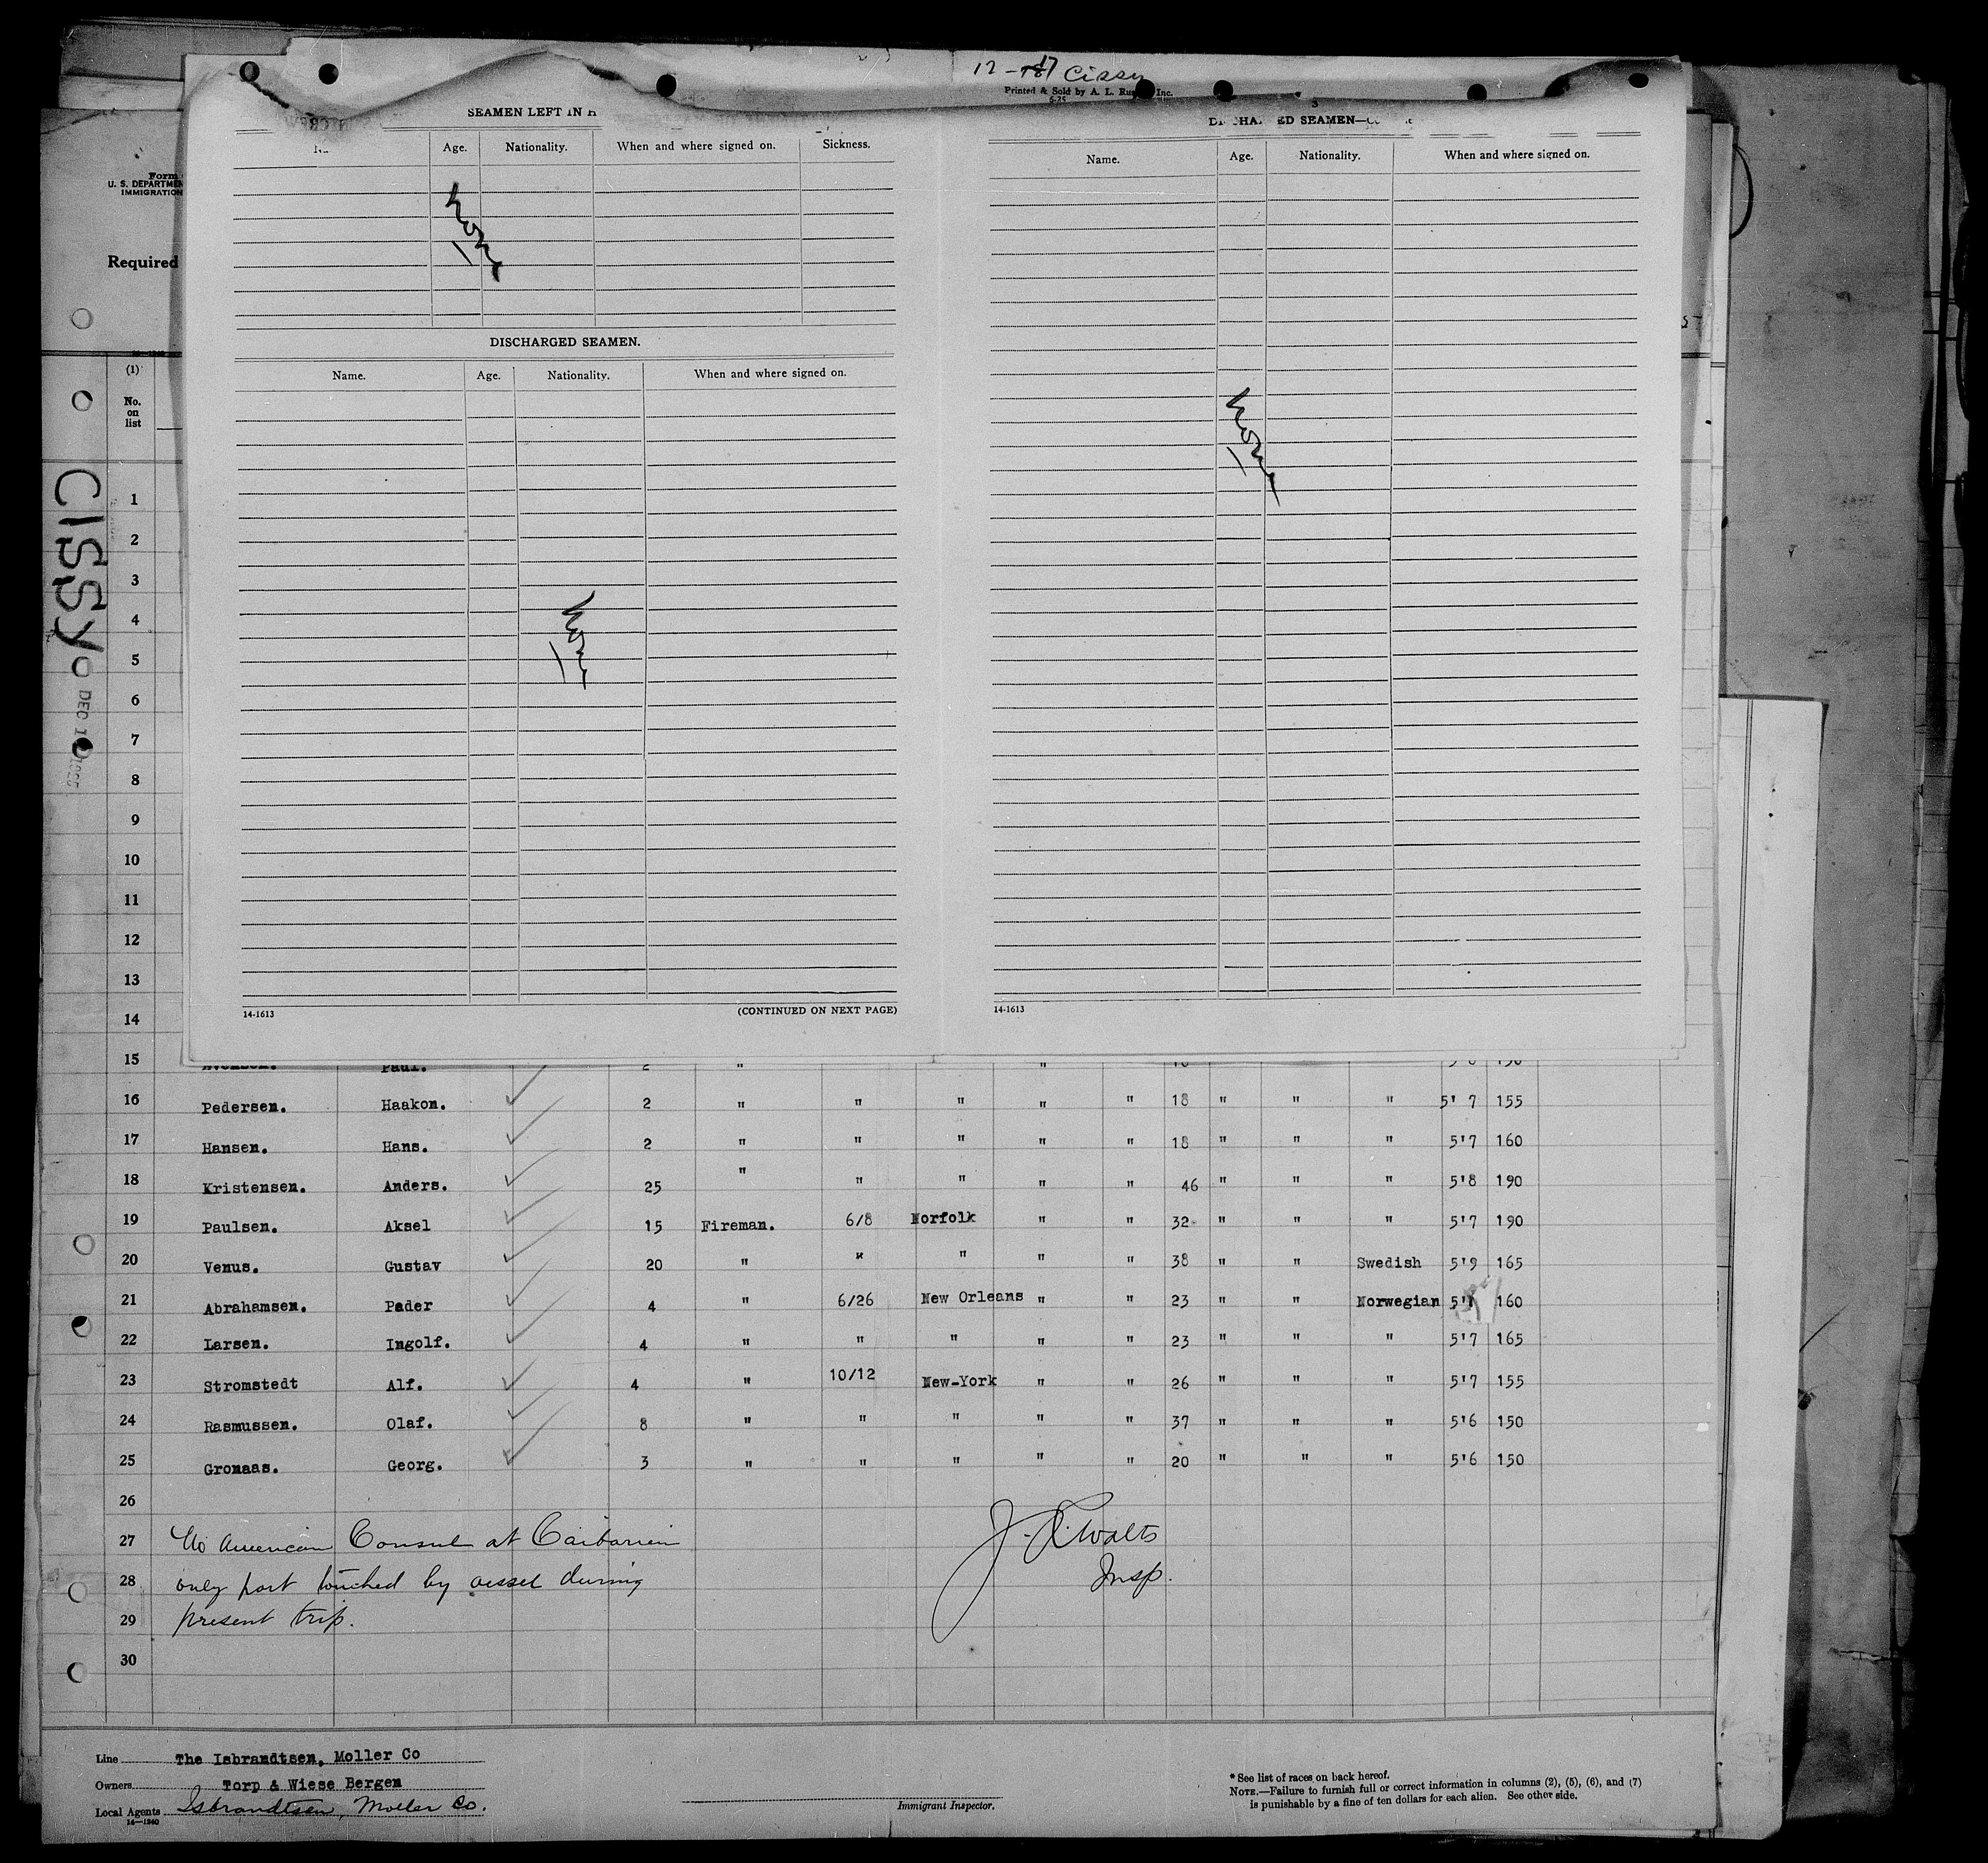 12-17 Cissy
Printed & Sold by A. L. Inc.
6-25
SEAMEN LEFT IN
Age. Nationality. When and where signed on. Sickness.
None
DISCHARGED SEAMEN.
Name. Age. Nationality. When and where signed on.
None
14-1613 (CONTINUED ON NEXT PAGE)
3
SEAMEN—
Name. Age. Nationality. When and where signed on.
None
14-1613
Form
U. S.
IMMIGRATION
Required
(1)
No.
on
list
CISSY
DEC
1
2
3
4
5
6
7
8
9
10
11
12
13
14
15 Paul. 2 "
16 Pedersen. Haakon. 2 " " " " " 18 " " " 5' 7 155
17 Hansen. Hans. 2 " " " " " 18 " " " 5'7 160
18 Kristensen. Anders. 25 " " " " " 46 " " " 5'8 190
19 Paulsen. Aksel 15 Fireman. 6/8 Norfolk " " 32 " " " 5'7 190
20 Venus. Gustav 20 " " " " " 38 " " Swedish 5'9 165
21 Abrahamsen. Peder 4 " 6/26 New Orleans " " 23 " " Norwegian 160
22 Larsen. Ingolf. 4 " " " " " 23 " " " 5'7 165
23 Stromstedt Alf. 4 " 10/12 New-York " " 26 " " " 5'7 155
24 Rasmussen. Olaf. 8 " " " " " 37 " " " 5'6 150
25 Gronaas. Georg. 3 " " " " " 20 " " " 5'6 150
26
27 No American Consul at Caibarien J. R. Walts
28 only port touched by vessel during Insp.
29 present trip.
30
Line The Isbrandtsen, Moller Co
Owners Torp & Wiese Bergen
Local Agents Isbrandtsen, Moller Co.
14—1240
Immigrant Inspector.
* See list of races on back hereof.
NOTE.—Failure to furnish full or correct information in columns (2), (5), (6), and (7)
is punishable by a fine of ten dollars for each alien. See other side.